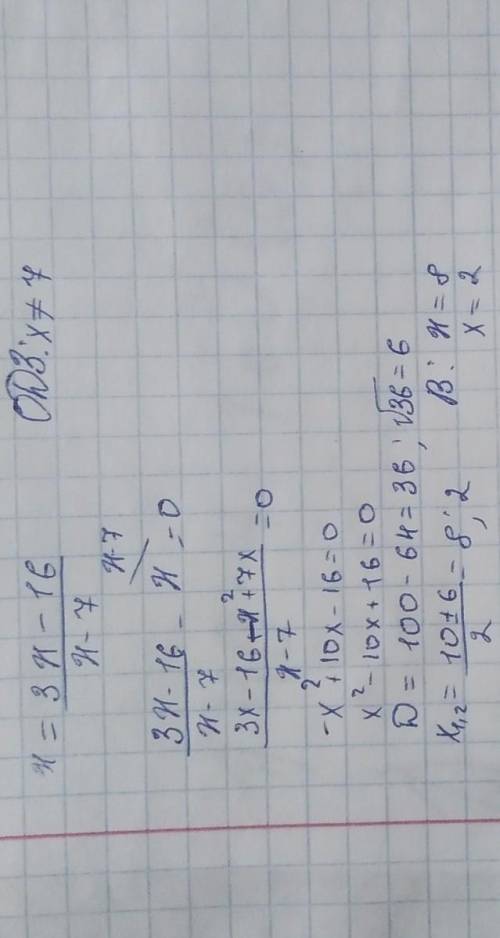 x = 3x - 16 / x - 7 ОДЗ: x ≠ 7
3x - 16 / x - 7 - x \ x-7 = 0
3x - 16 - x² + 7x / x - 7 = 0
-x² + 10x - 16 = 0
x² - 10x + 16 = 0
D = 100 - 64 = 36; √36 = 6
x₁,₂ = 10 ± 6 / 2 = 8; 2 В: x = 8
x = 2